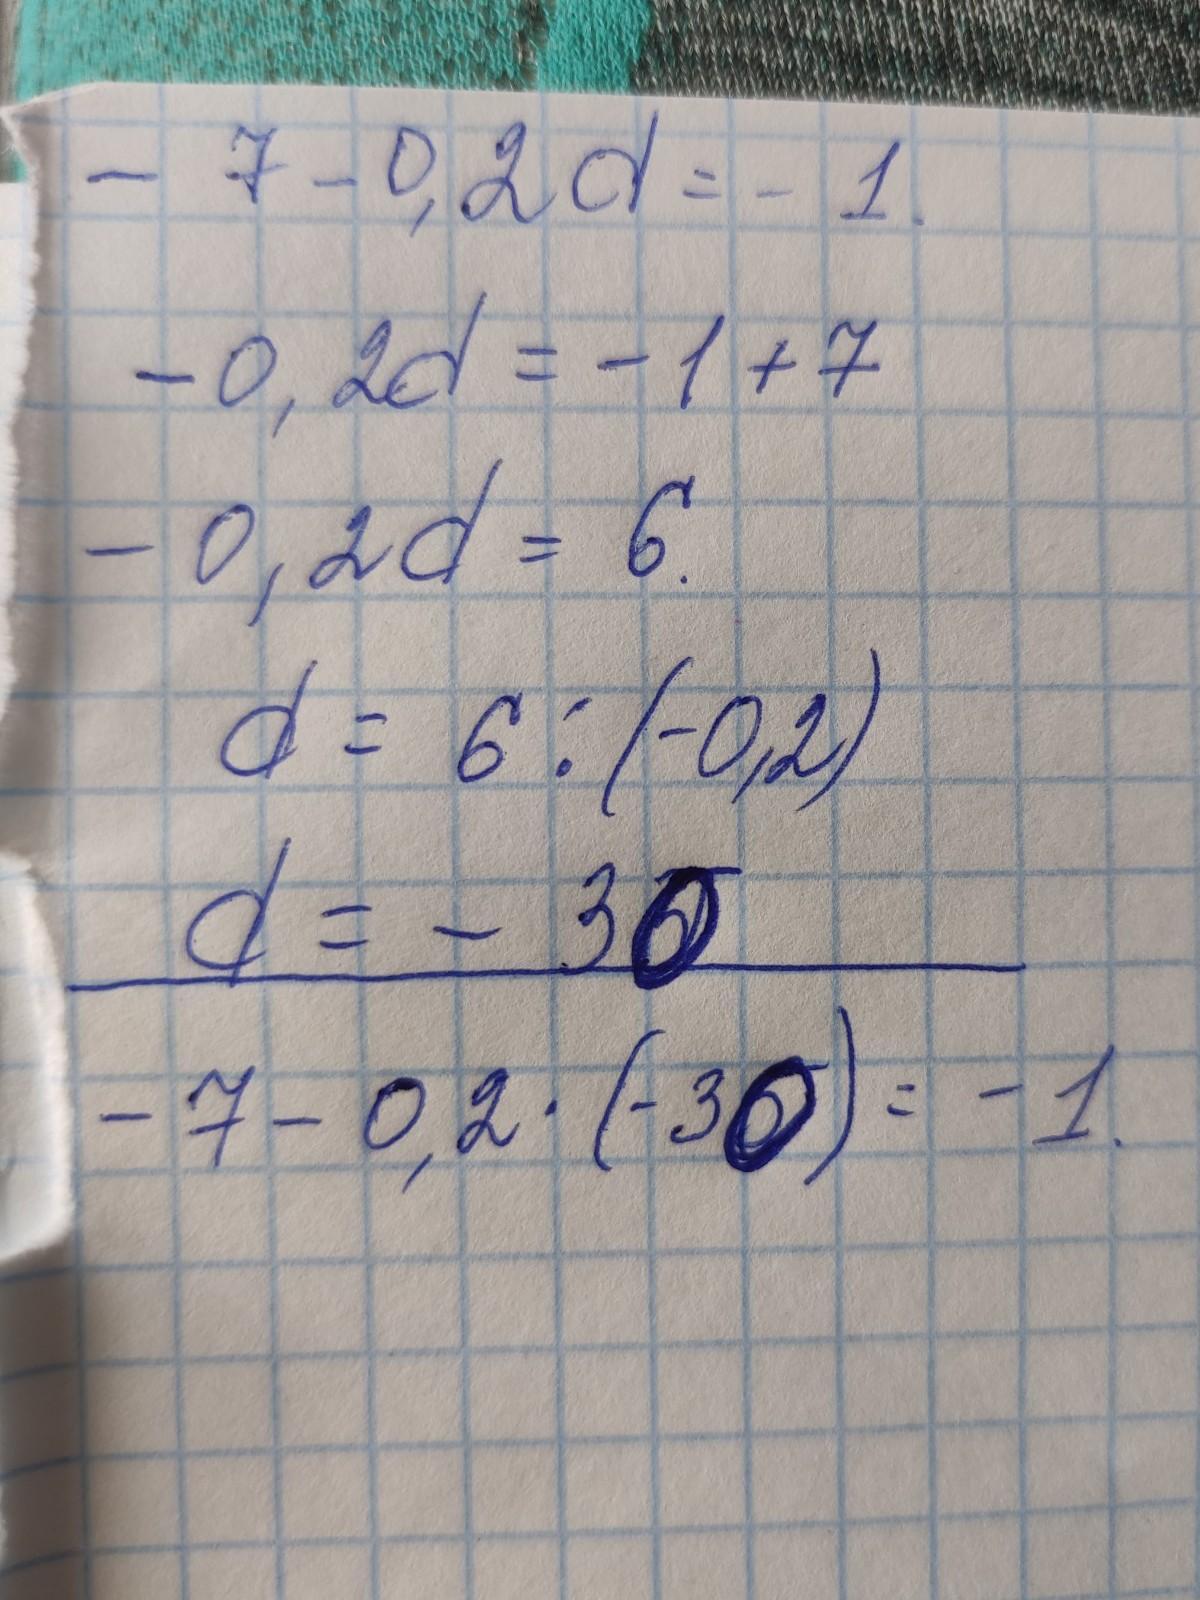 - 7 - 0,2d = - 1.
- 0,2d = - 1 + 7
- 0,2d = 6.
d = 6 : (-0,2)
d = - 30
- 7 - 0,2 · (-30) = - 1.